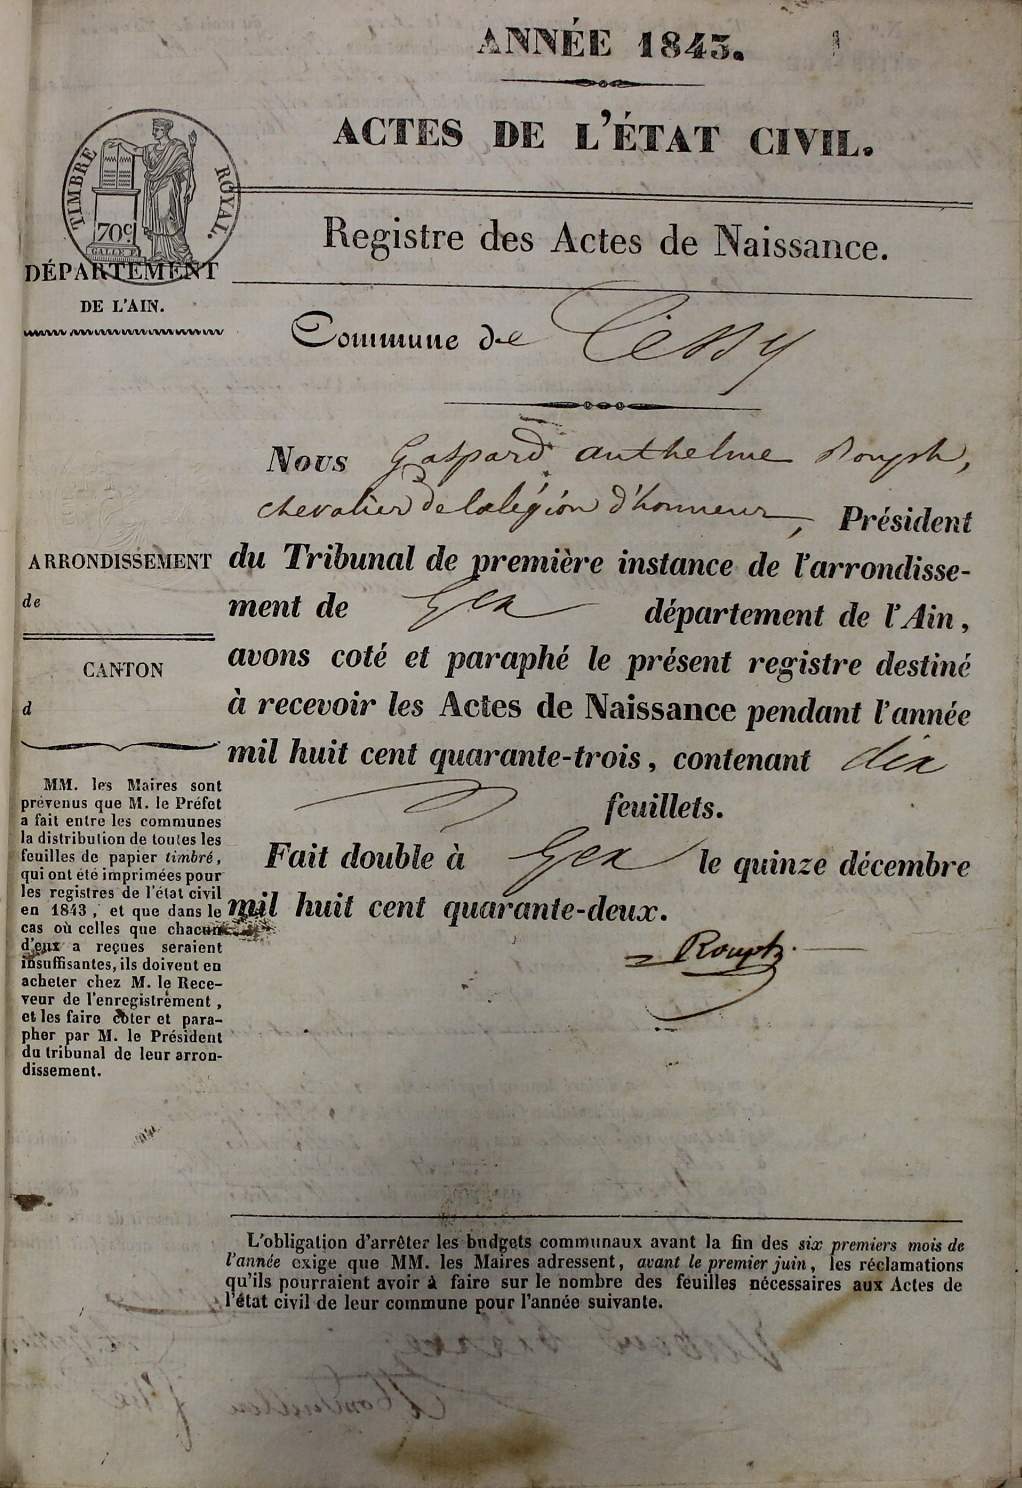 ANNÉE 1843.
ACTES DE L'ÉTAT CIVIL.
TIMBRE ROYAL.
70c
GALLE F.
Registre des Actes de Naissance.
DÉPARTEMENT
DE L'AIN.
Commune de Cessy
Nous Gaspard anthelme Rouph,
chevalier de la légion d'honneur, Président
du Tribunal de première instance de l'arrondisse-
ment de Gex département de l'Ain,
avons coté et paraphé le présent registre destiné
à recevoir les Actes de Naissance pendant l'année
mil huit cent quarante-trois, contenant dix
feuillets.
Fait double à Gex le quinze décembre
mil huit cent quarante-deux.
ARRONDISSEMENT
de
CANTON
d
MM. les Maires sont
prévenus que M. le Préfet
a fait entre les communes
la distribution de toutes les
feuilles de papier timbré,
qui ont été imprimées pour
les registres de l'état civil
en 1843, et que dans le
cas où celles que chacun
d'eux a reçues seraient
insuffisantes, ils doivent en
acheter chez M. le Rece-
veur de l'enregistrement,
et les faire coter et para-
pher par M. le Président
du tribunal de leur arron-
dissement.
L'obligation d'arrêter les budgets communaux avant la fin des six premiers mois de
l'année exige que MM. les Maires adressent, avant le premier juin, les réclamations
qu'ils pourraient avoir à faire sur le nombre des feuilles nécessaires aux Actes de
l'état civil de leur commune pour l'année suivante.